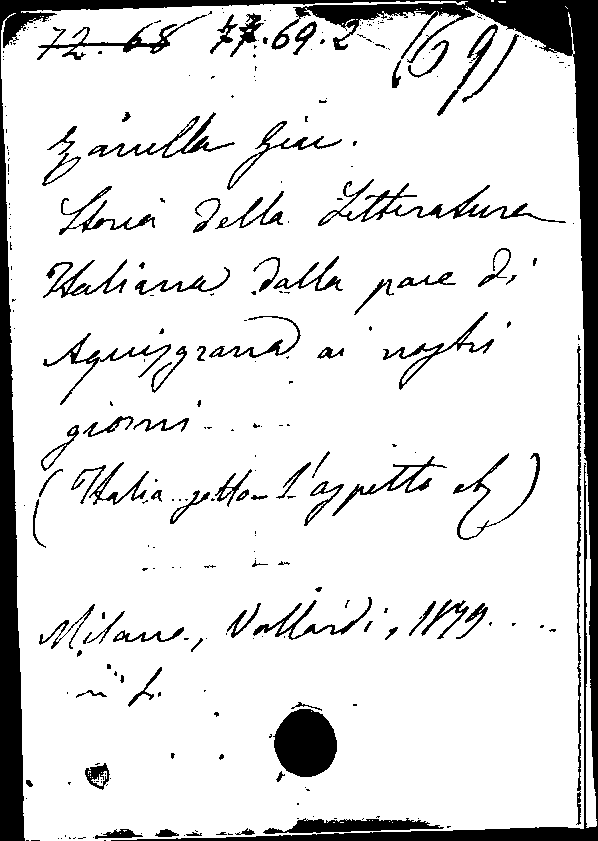 72. 68 77.69.2 (69)
Zanella Giu.
Storia della Letteratura
Italiana dalla pace di
Aquisgrana ai nostri
giorni
(Italia sotto l'aspetto etc)
Milano, Vallardi, 1879
in L.